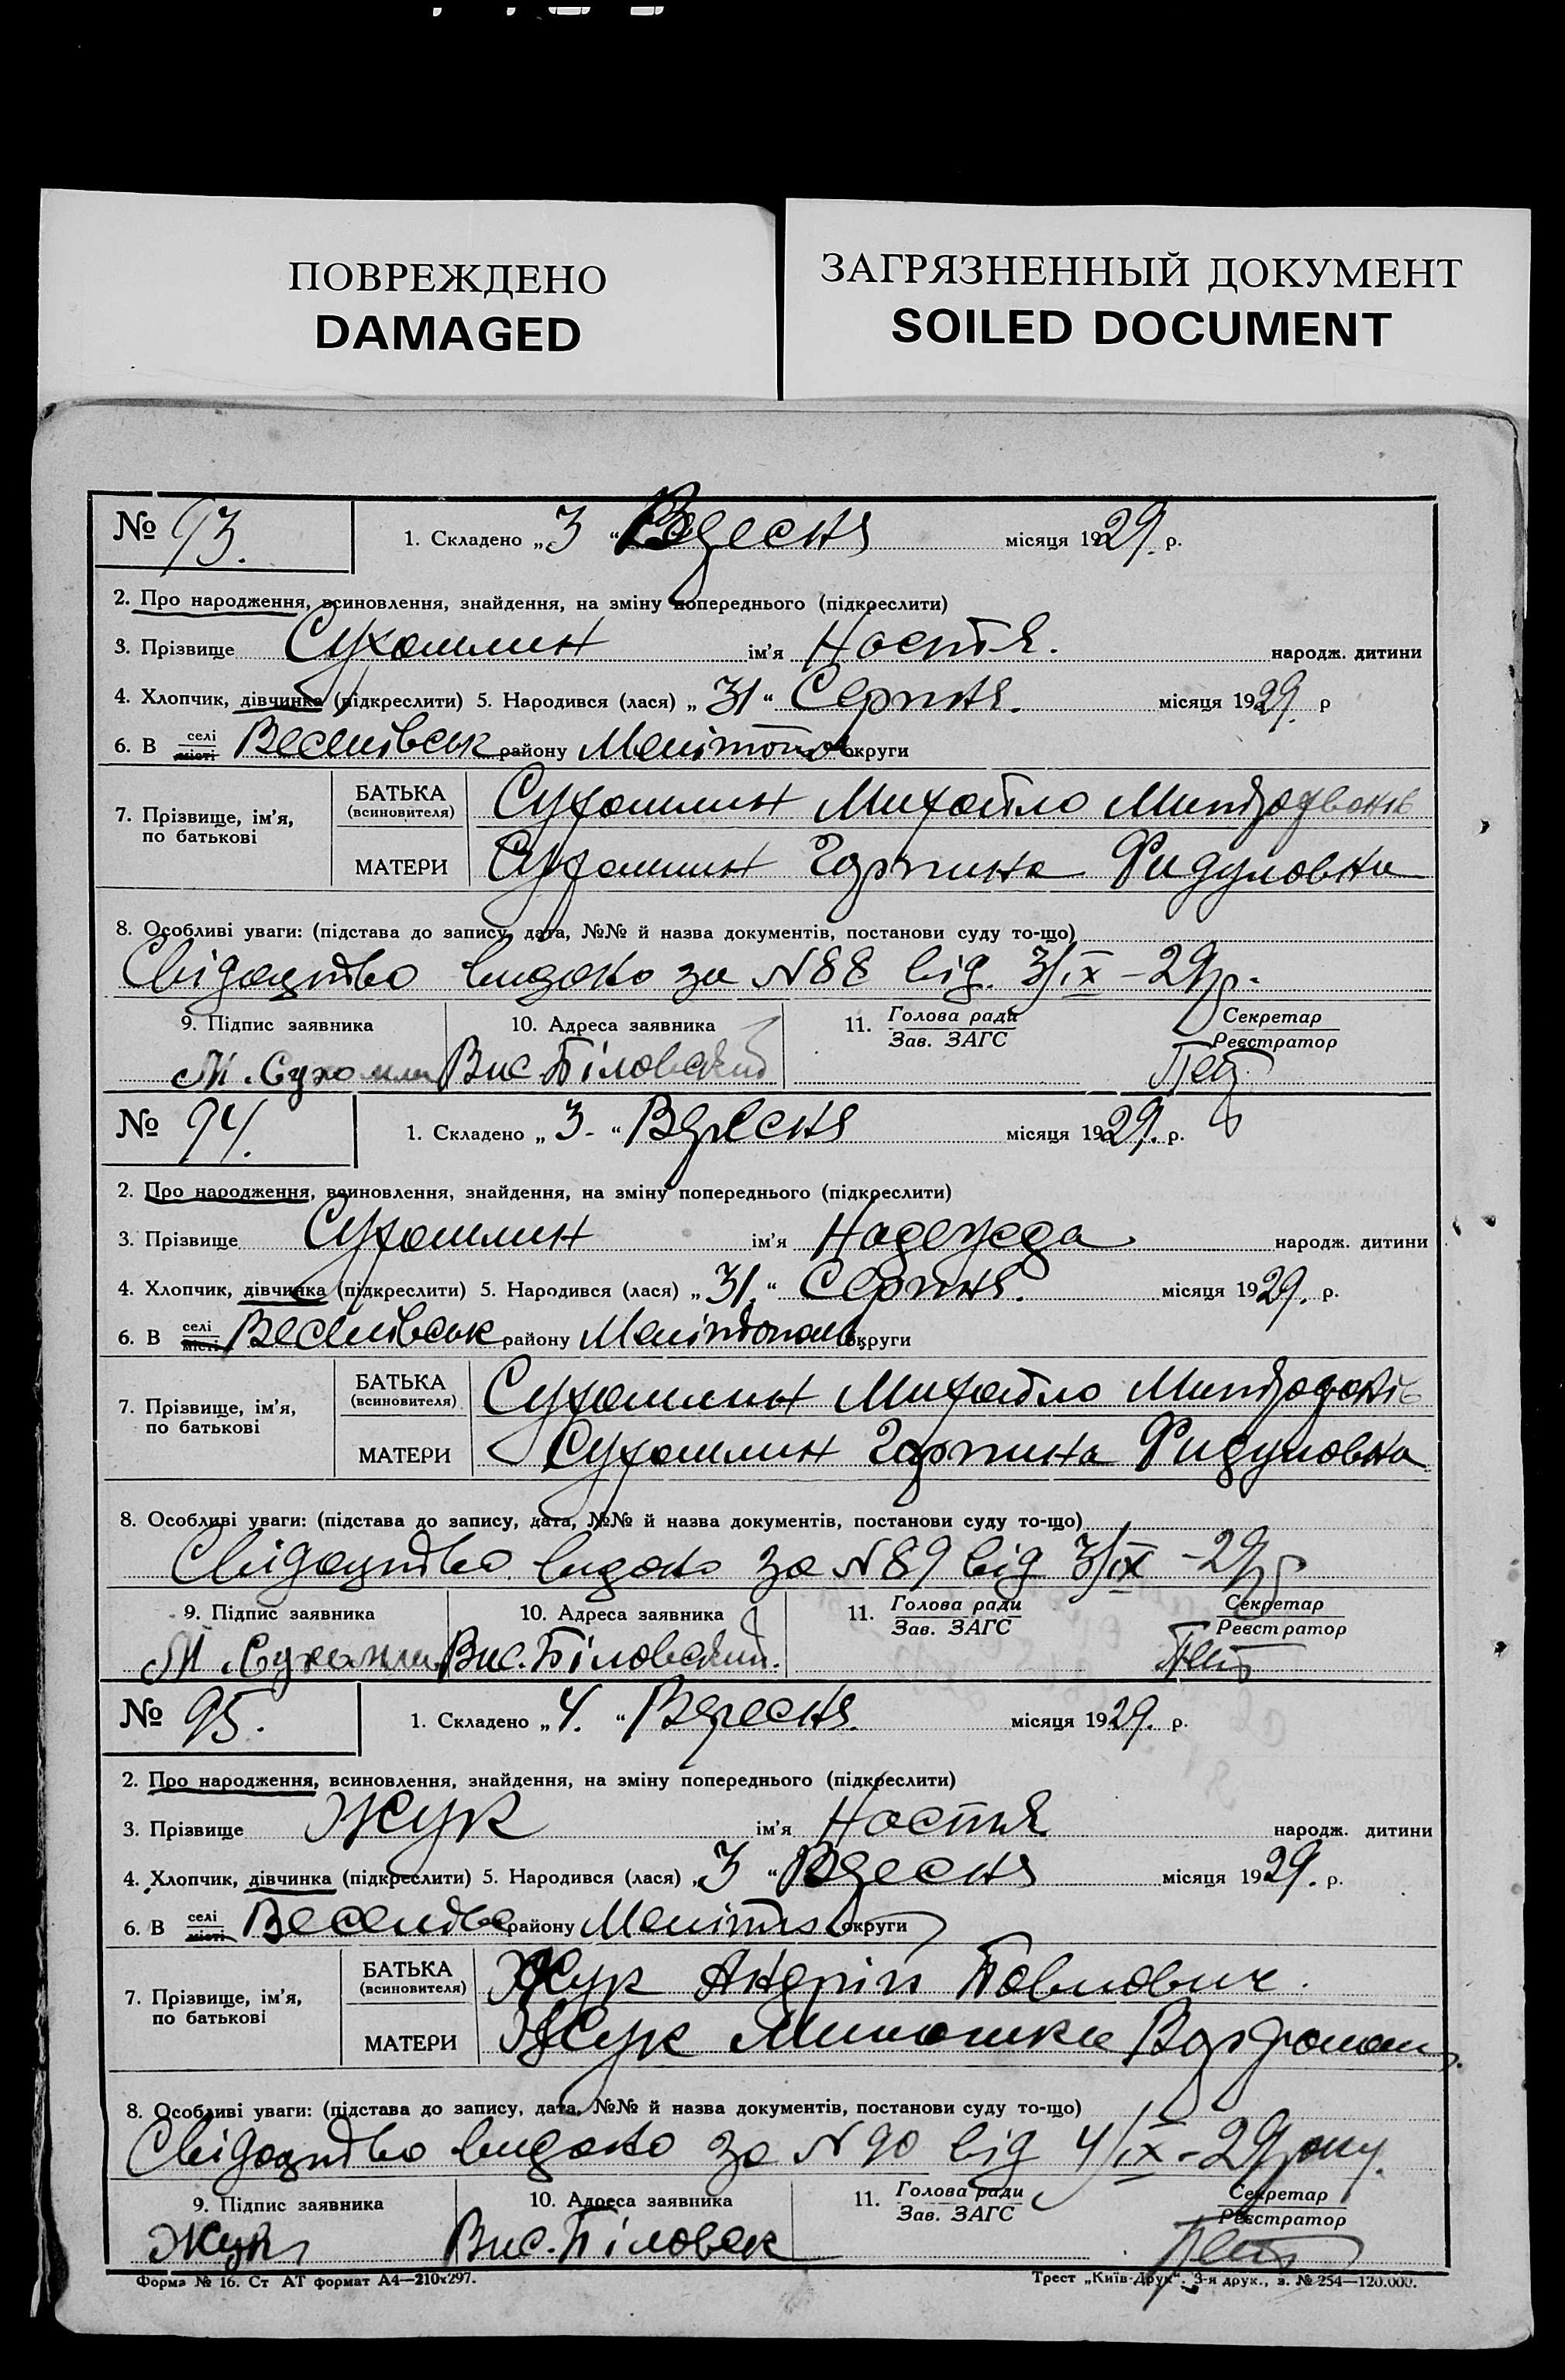 ПОВРЕЖДЕНО
DAMAGED
ЗАГРЯЗНЕННЫЙ ДОКУМЕНТ
SOILED DOCUMENT
№ 93. 1. Складено „3“ Вересня місяця 1929. р.
2. Про народження, всиновлення, знайдення, на зміну попереднього (підкреслити)
3. Прізвище Сухомлин ім'я Настя. народж. дитини
4. Хлопчик, дівчинка (підкреслити) 5. Народився (лася) „31“ Серпня. місяця 1929. р
6. В селі місті Веселівськ району Мелітопол округи
7. Прізвище, ім'я, по батькові
БАТЬКА (всиновителя) Сухомлин Михайло
МАТЕРИ Сухомлин Горпина
8. Особливі уваги: (підстава до запису, дата, №№ й назва документів, постанови суду то-що)
Свідоцтво видано за N 88 від. 3/IX – 29р.
9. Підпис заявника 10. Адреса заявника 11. Голова ради Зав. ЗАГС Секретар Реєстратор
М. Сухомлин Вис. Біловский
№ 94. 1. Складено „3.“ Вересня місяця 1929. р.
2. Про народження, всиновлення, знайдення, на зміну попереднього (підкреслити)
3. Прізвище Сухомлин ім'я Надежда народж. дитини
4. Хлопчик, дівчинка (підкреслити) 5. Народився (лася) „31.“ Серпня. місяця 1929. р.
6. В селі місті Веселівськ району Мелітополь округи
7. Прізвище, ім'я, по батькові
БАТЬКА (всиновителя) Сухомлин Михайло
МАТЕРИ Сухомлин Горпина
8. Особливі уваги: (підстава до запису, дата, №№ й назва документів, постанови суду то-що)
Свідоцтво видано за N 89 від 3/IX – 29р
9. Підпис заявника 10. Адреса заявника 11. Голова ради Зав. ЗАГС Секретар Реєстратор
М. Сухомлин Вис. Біловский.
№ 95. 1. Складено „4.“ Вересня. місяця 1929. р.
2. Про народження, всиновлення, знайдення, на зміну попереднього (підкреслити)
3. Прізвище Жук ім'я Настя народж. дитини
4. Хлопчик, дівчинка (підкреслити) 5. Народився (лася) „3“ Вересня місяця 1929. р.
6. В селі місті району округи
7. Прізвище, ім'я, по батькові
БАТЬКА (всиновителя) Жук Андрій Павлович.
МАТЕРИ Жук
8. Особливі уваги: (підстава до запису, дата, №№ й назва документів, постанови суду то-що)
Свідоцтво видано за N 90 від 4/IX – 29року.
9. Підпис заявника 10. Адреса заявника 11. Голова ради Зав. ЗАГС Секретар Реєстратор
Жук Вис. Біловск
Форма № 16. Ст АТ формат А4—210х297. Трест „Київ-Друк“. 3-я друк., з. № 254—120.000.